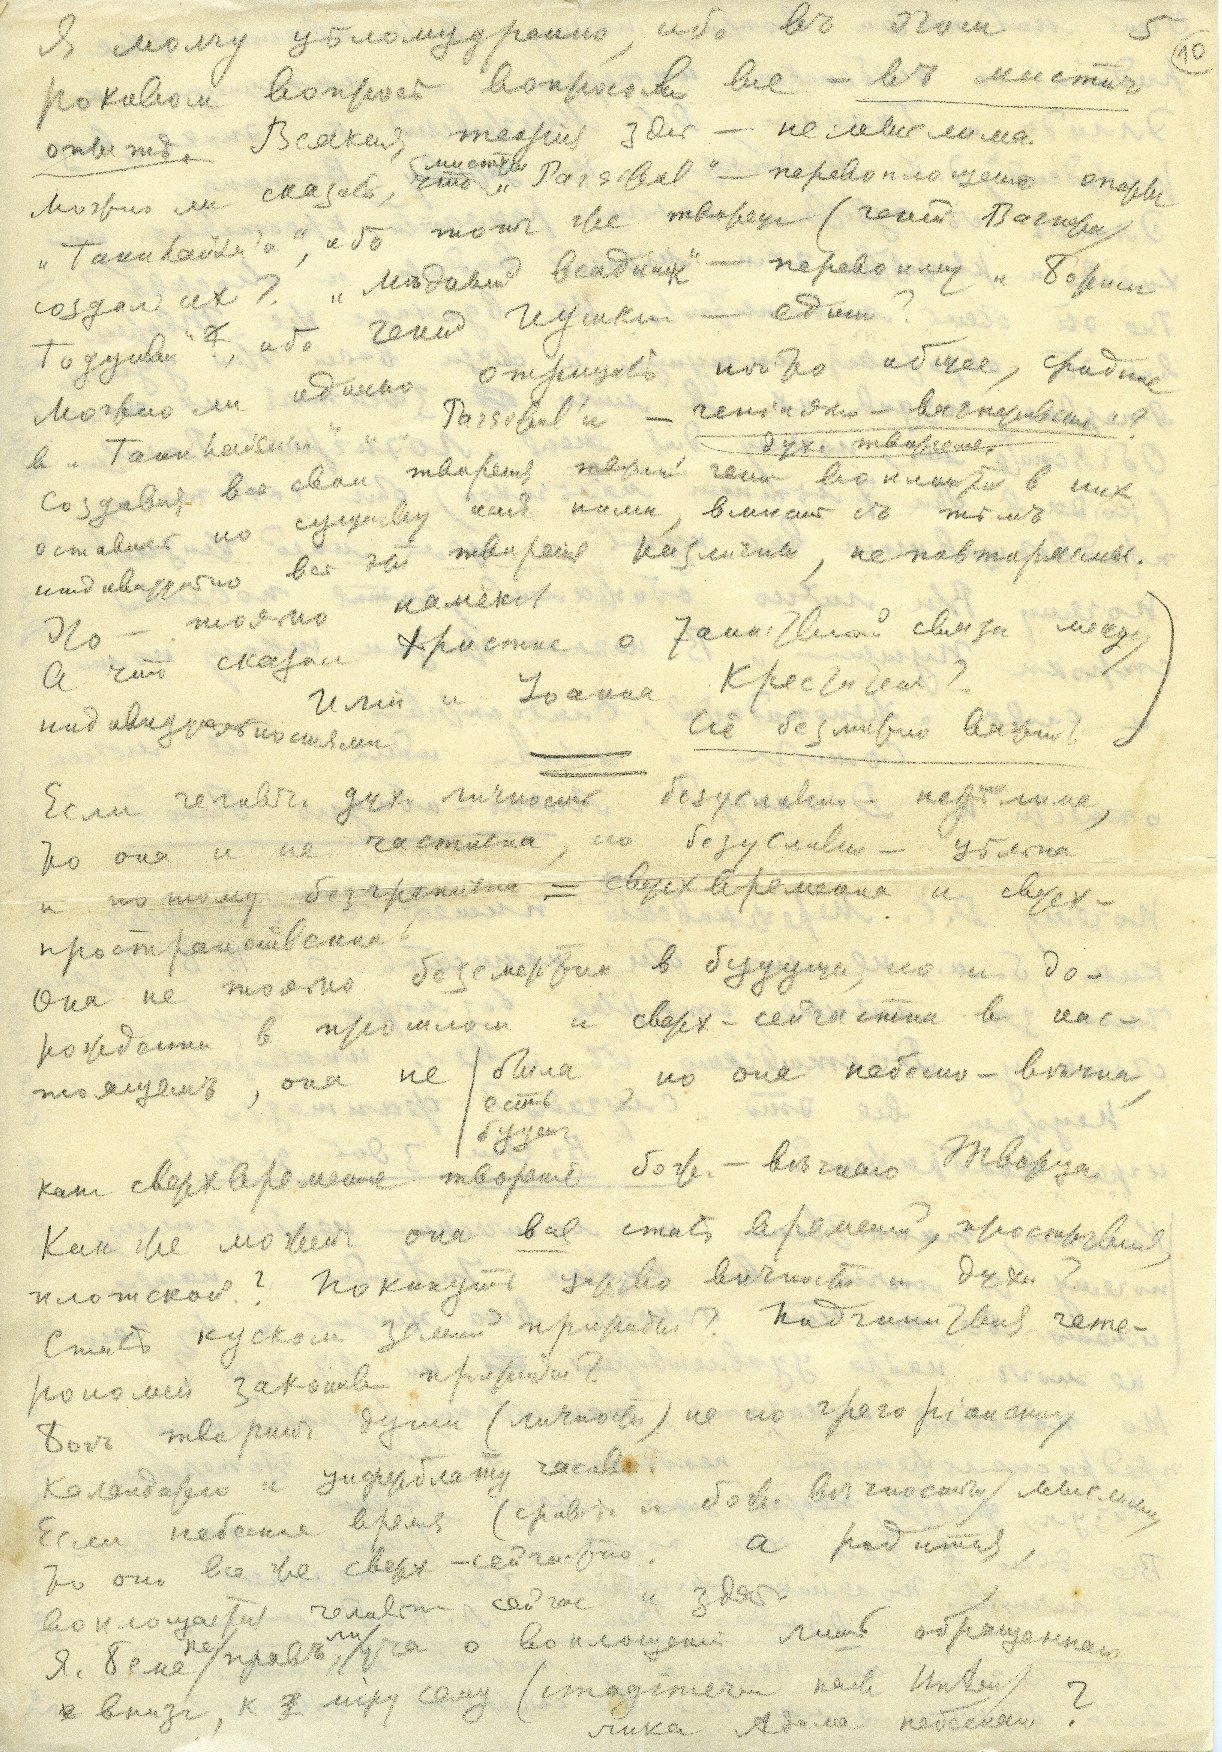 Я молчу цѣломудренно, ибо въ этом 5
10
роковом вопросѣ вопросов все — въ мистич
опытѣ. Всякая теорія здѣс — немыслима.
Можно ли сказать, что „Parsifal" — перевоплощение оперы
„Tannhäuser'а", ибо тотъ же творец (геній Вагнера)
создал их? „Мѣдный всадник" — перевоплощ „Борис
Годунов"?, ибо геній Пушкин — един?
Можно ли однако отрицать нѣчто общее, сродное
в „Tannhäuser" и Parsifal'и — геніально-вагнеровское?
дух. творческ.
Создавая все свои творенія геній воплощ в них
оставаясь по существу над ними, вмѣстѣ съ тѣмъ
индивидуально все эти творенія различны, неповторяемы.
Это — только намеки!
А что сказал Христос о таинственной связи между
Иліи и Іоанна Крестителя?
индивидуальностями Всё безмѣрно важно!
Если человѣч. дух. личность безусловно-недѣлима,
то она и не частична, но безусловно — цѣльна
и потому безгранична = сверхвременна и сверх-
пространственна!
Она не только безсмертна в будущем, но и до-
рожденна в прошлом и сверх-сейчастна в нас-
тоящемъ, она не была, но она небесно-вѣчна,
есть
будет
как сверхвременное творение бож.-вѣчнаго Творца.
Как же может она вся стать временной, пространствен,
плотской? Покинуть царство вѣчности и духа?
Стать куском земной природы? Подчиниться гете-
рономии законов природы?
Богъ творитъ души (личности) не по грегоріанскому
календарю и циферблату часов.
Если небесное время (сравн. и бож. вѣчностью) мыслимо,
то оно все же сверх-сейчастно. А родится,
воплощается человѣк сейчас и здѣсь.
Я. Беме не правъ ли, уча о воплощеніи лишь обращеннаго
вниз, к міру сему
Адама небеснаго?